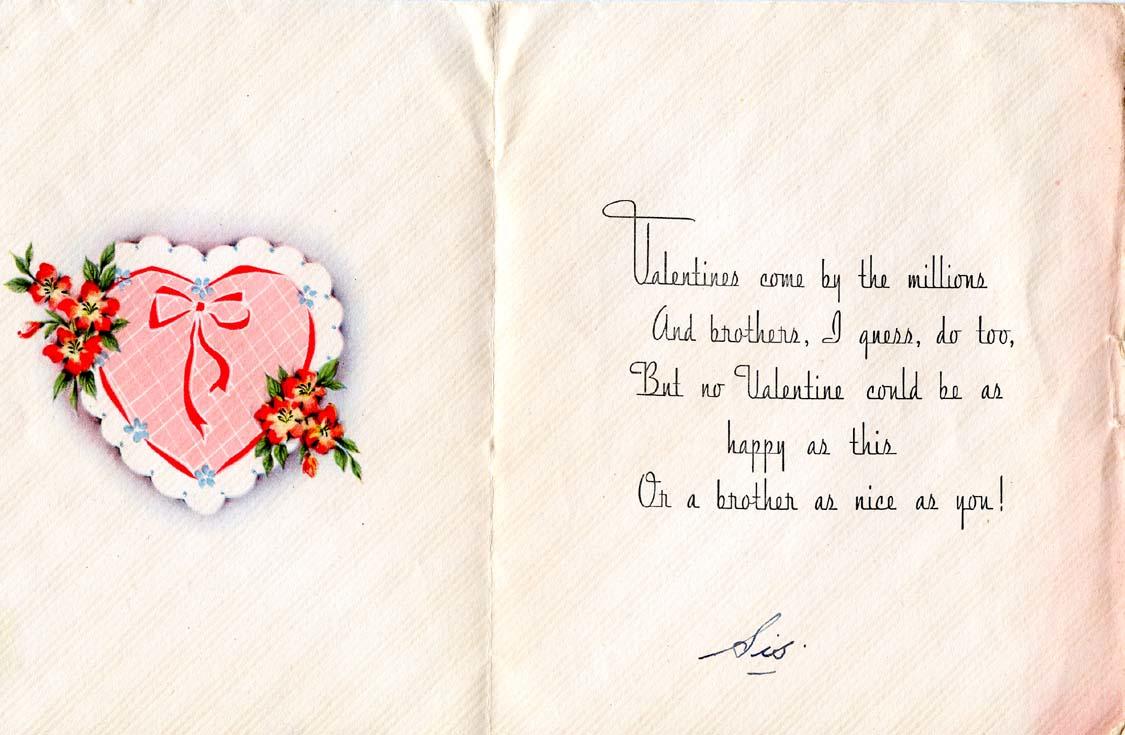 Valentines come by the millions
And brothers, I guess, do too,
But no Valentine could be as
happy as this
Or a brother as nice as you!
Sis.